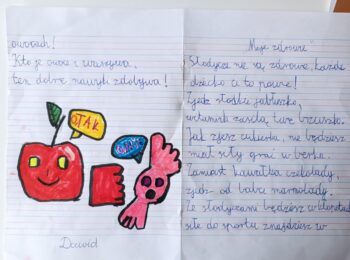 „Moje zdrowie"
Słodycze nie są zdrowe, każde
dziecko Ci to powie!
Zjesz słodkie jabłuszko,
witaminki zasilą twe brzuszko.
Jak zjesz cukierka, nie będziesz
miał siły grać w berka.
Zamiast kawałka czekolady,
zjedz od babci marmolady.
Ze słodyczami będziesz w kłopotach
siłę do sportu znajdziesz w
owocach!
Kto je owoce i warzywa,
ten dobre nawyki zdobywa!
O TAK
Dawid